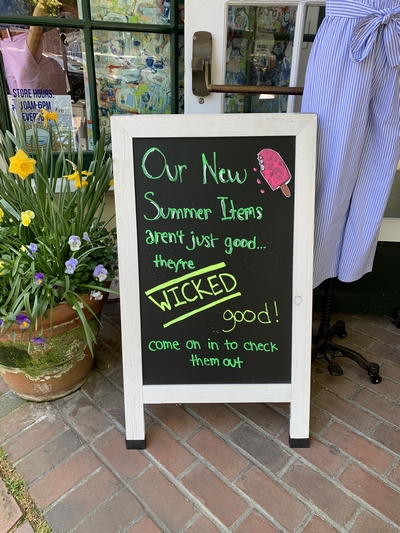 STORE HOURS:
10AM-6PM
Our New
Summer Items
aren't just good...
they're
WICKED
good!
come on in to check
them out